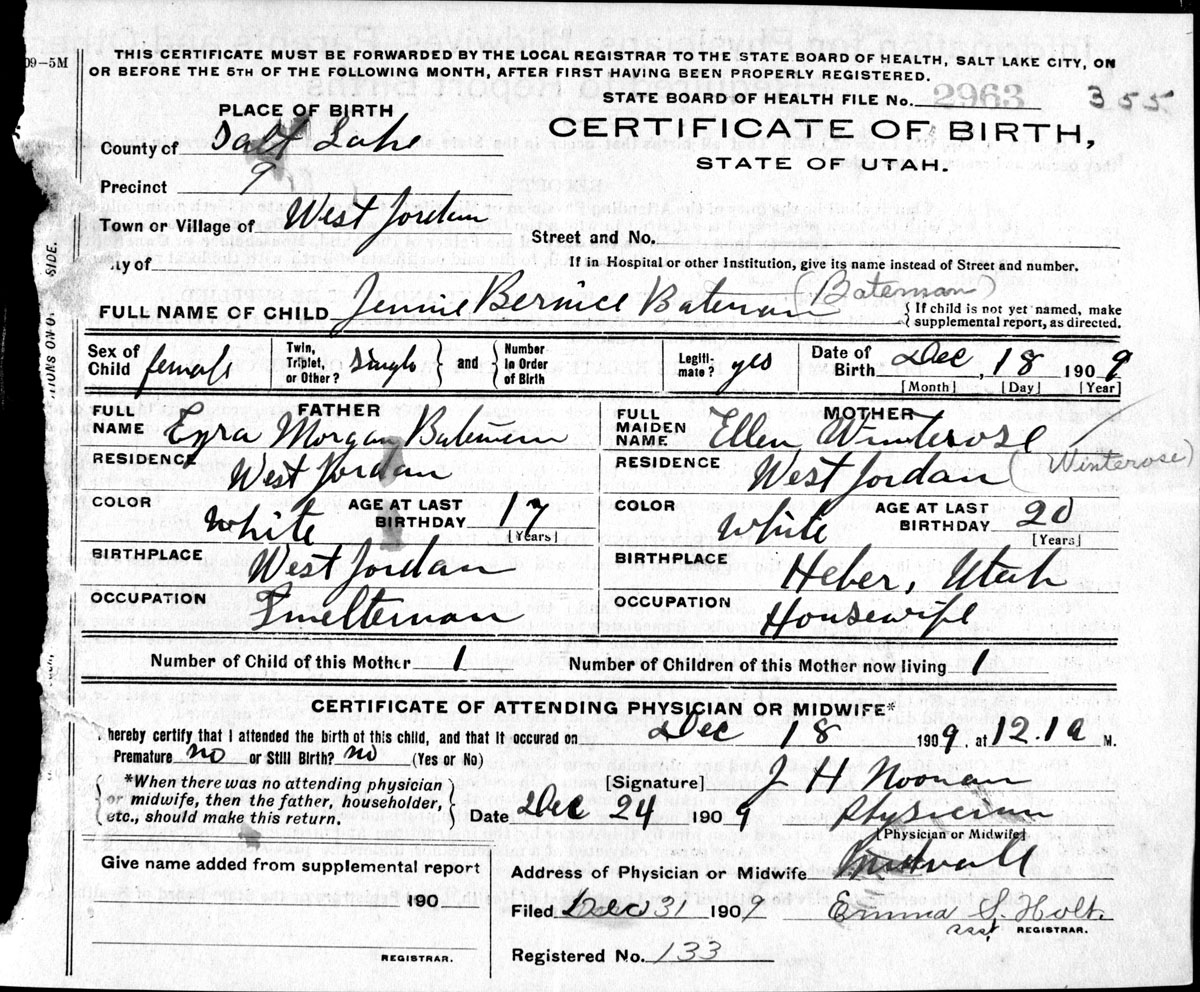 09-5M
THIS CERTIFICATE MUST BE FORWARDED BY THE LOCAL REGISTRAR TO THE STATE BOARD OF HEALTH, SALT LAKE CITY, ON
OR BEFORE THE 5TH OF THE FOLLOWING MONTH, AFTER FIRST HAVING BEEN PROPERLY REGISTERED.
STATE BOARD OF HEALTH FILE No. 2963 355
PLACE OF BIRTH
CERTIFICATE OF BIRTH,
STATE OF UTAH.
County of Salt Lake
Precinct 9
Town or Village of West Jordan
Street and No.
ity of
If in Hospital or other Institution, give its name instead of Street and number.
FULL NAME OF CHILD Jennie Bernice Bateman (Bateman)
{If child is not yet named, make
supplemental report, as directed.
Sex of Child female Twin, Triplet, or Other? Single and Number in Order of Birth Legiti-mate? yes Date of Birth Dec, 18 1909
[Month] [Day] [Year]
FATHER
FULL NAME Ezra Morgan Bateman
MOTHER
FULL MAIDEN NAME Ellen Winterose
(Winterose)
RESIDENCE West Jordan
RESIDENCE West Jordan
COLOR White AGE AT LAST BIRTHDAY 17 [Years]
COLOR White AGE AT LAST BIRTHDAY 20 [Years]
BIRTHPLACE West Jordan
BIRTHPLACE Heber, Utah
OCCUPATION Smelterman
OCCUPATION Housewife
Number of Child of this Mother 1 Number of Children of this Mother now living 1
CERTIFICATE OF ATTENDING PHYSICIAN OR MIDWIFE*
hereby certify that I attended the birth of this child, and that it occured on Dec 18 1909, at 12.1a M.
Premature no or Still Birth? no (Yes or No)
*When there was no attending physician
or midwife, then the father, householder,
etc., should make this return.
[Signature] J H Noonan
Date Dec 24 1909 Physician
[Physician or Midwife]
Give name added from supplemental report
190
REGISTRAR.
Address of Physician or Midwife Midvale
Filed Dec 31 1909 Emma S. Holt
asst REGISTRAR.
Registered No. 133